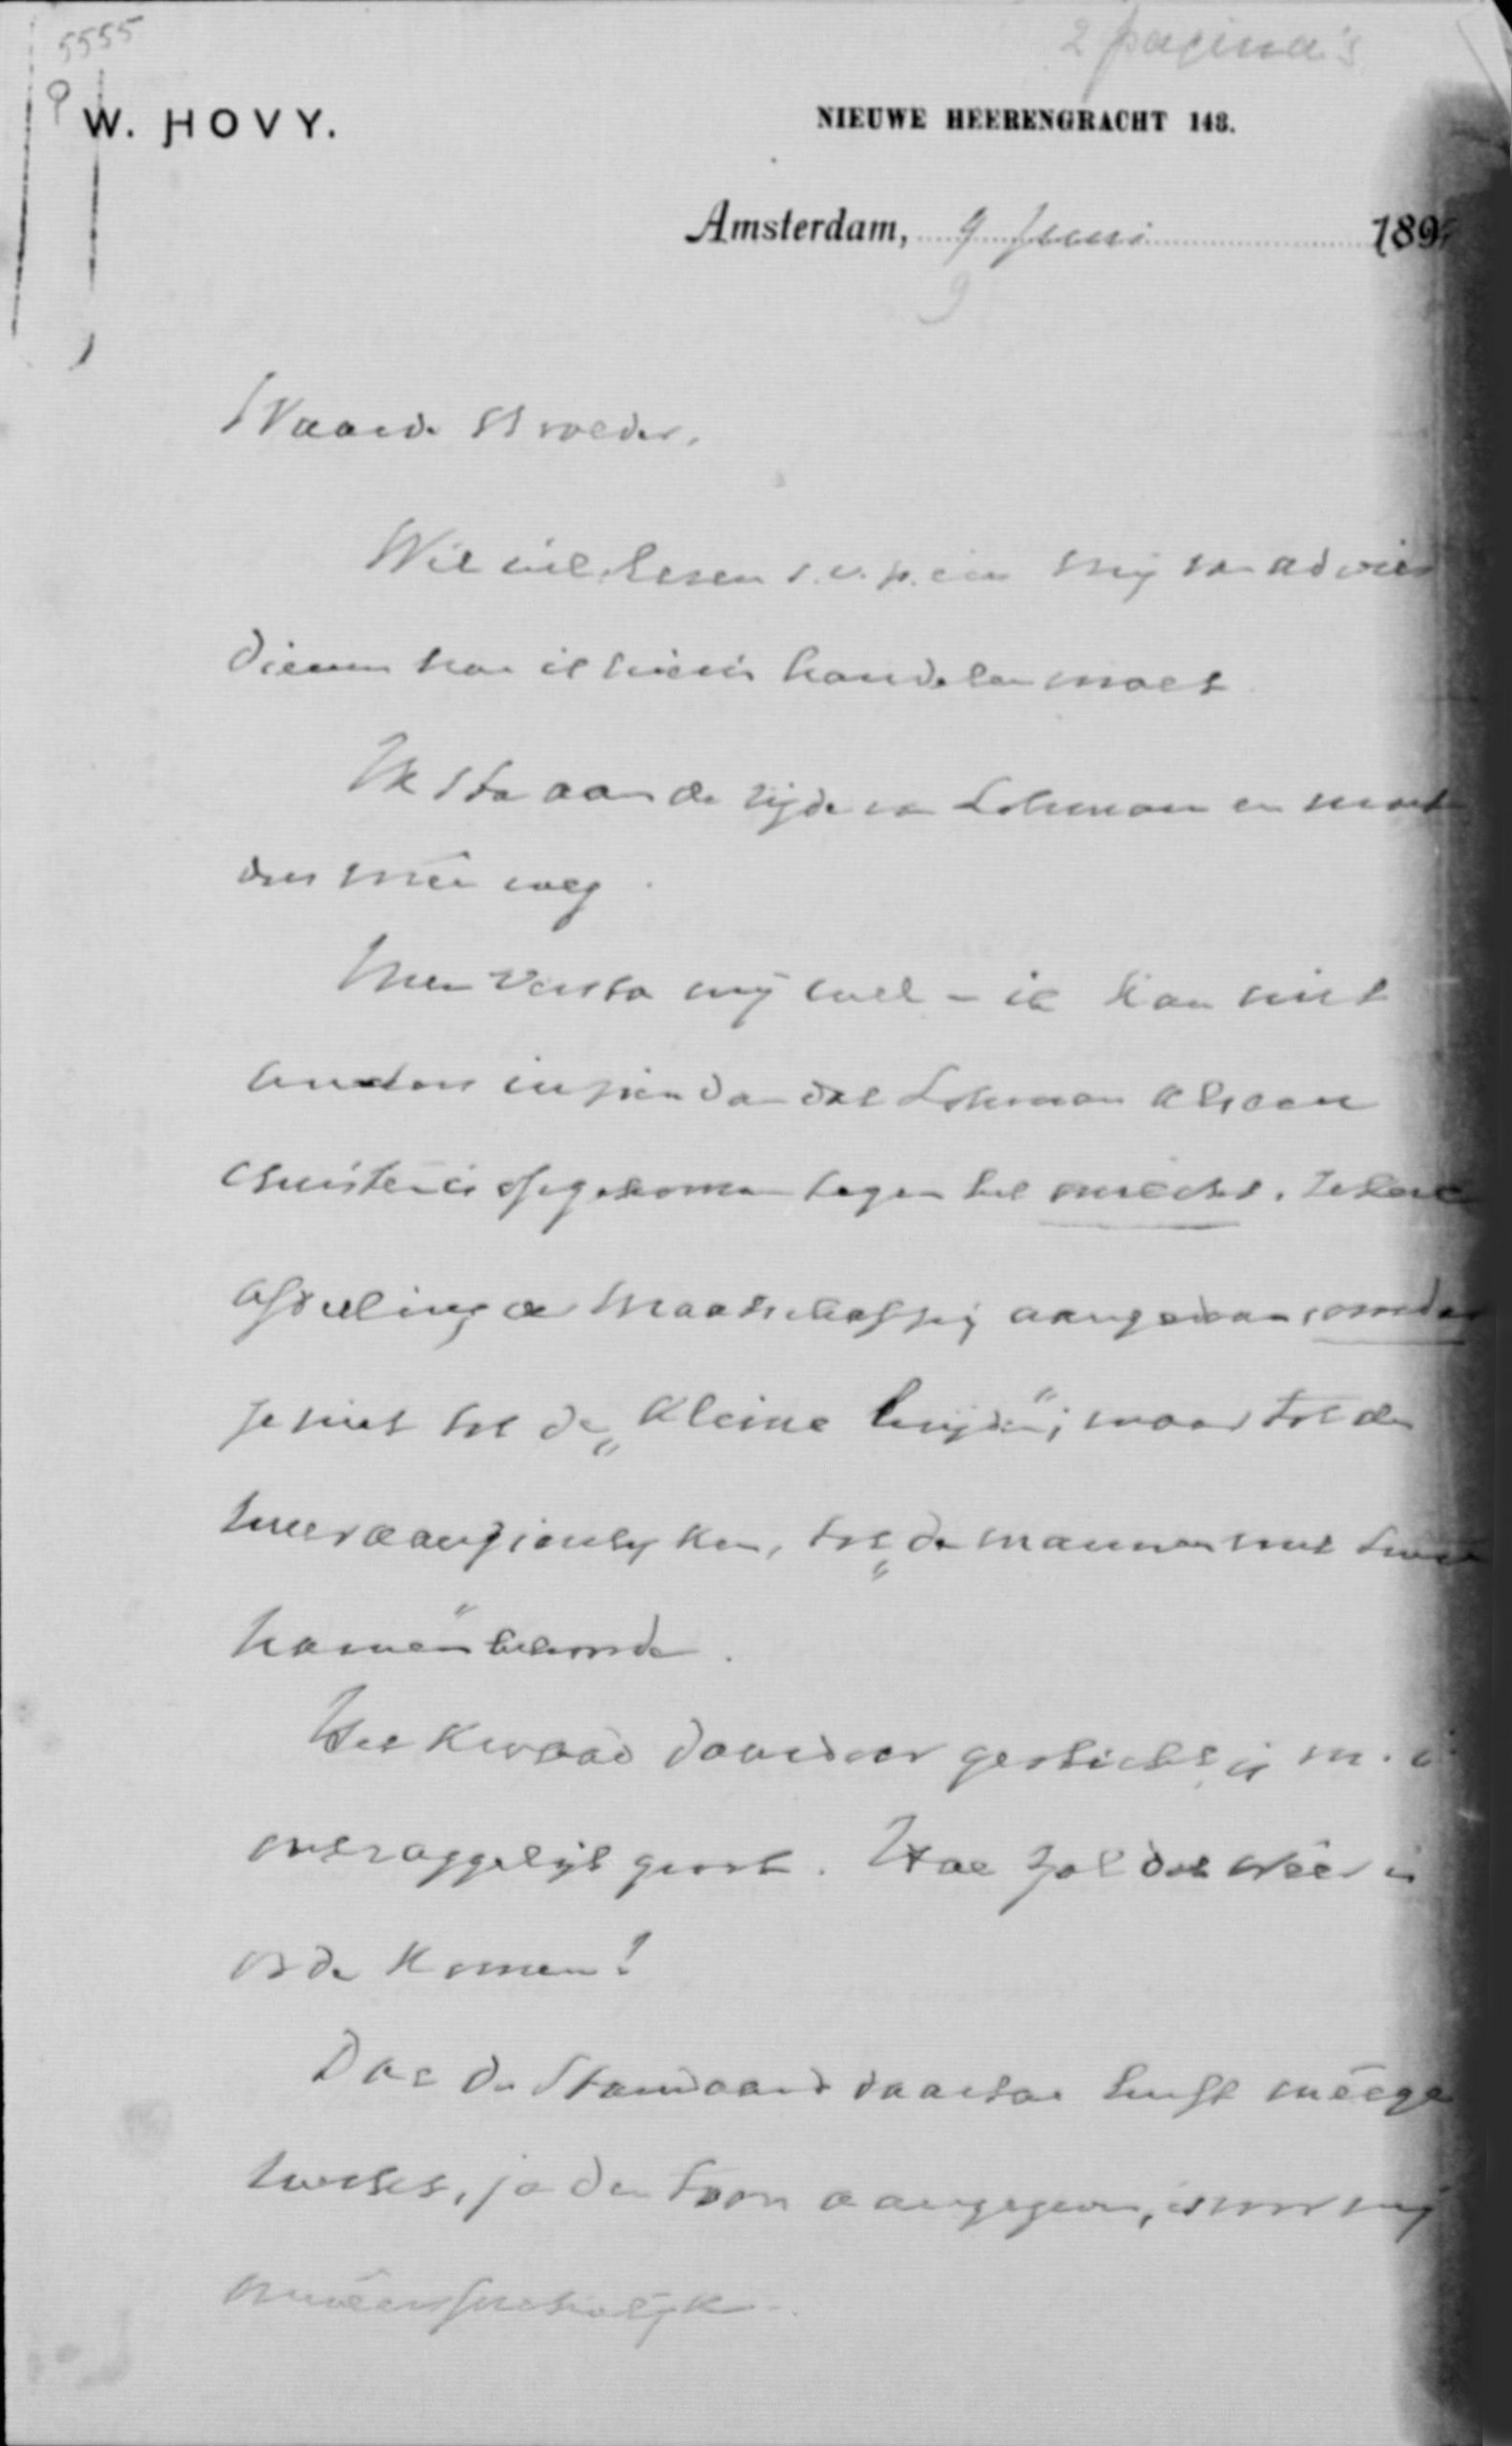 5555
2 pagina's
W. HOVY.
NIEUWE HEERENGRACHT 143.
Amsterdam, 9 Juni 189
9
Waarde Broeder,
Wil lezen s.v.p. en mij van advies
dienen hoe ik hierin handelen moet
Ik sta aan de zijde van Lohman en moet
dus mée weg.
Men versta mij wel – ik kan niet
anders inzien dan dat Lohman als een
Christen is opgekomen tegen het onrecht, zekere
afdeeling der Maatschappij aangedaan, omdat
ze niet tot de „Kleine luyden"; maar tot de
meer aanzienlijken, tot „de mannen met twee
namen" behoorde.
Het kwaad daardoor gesticht, is m. i.
onzeggelijk groot. Hoe zal dat wéér in
orde komen!
Dat de Standaard daartoe heeft méége
werkt, ja den toon aangegeven, is voor mij
onweersprekelijk.